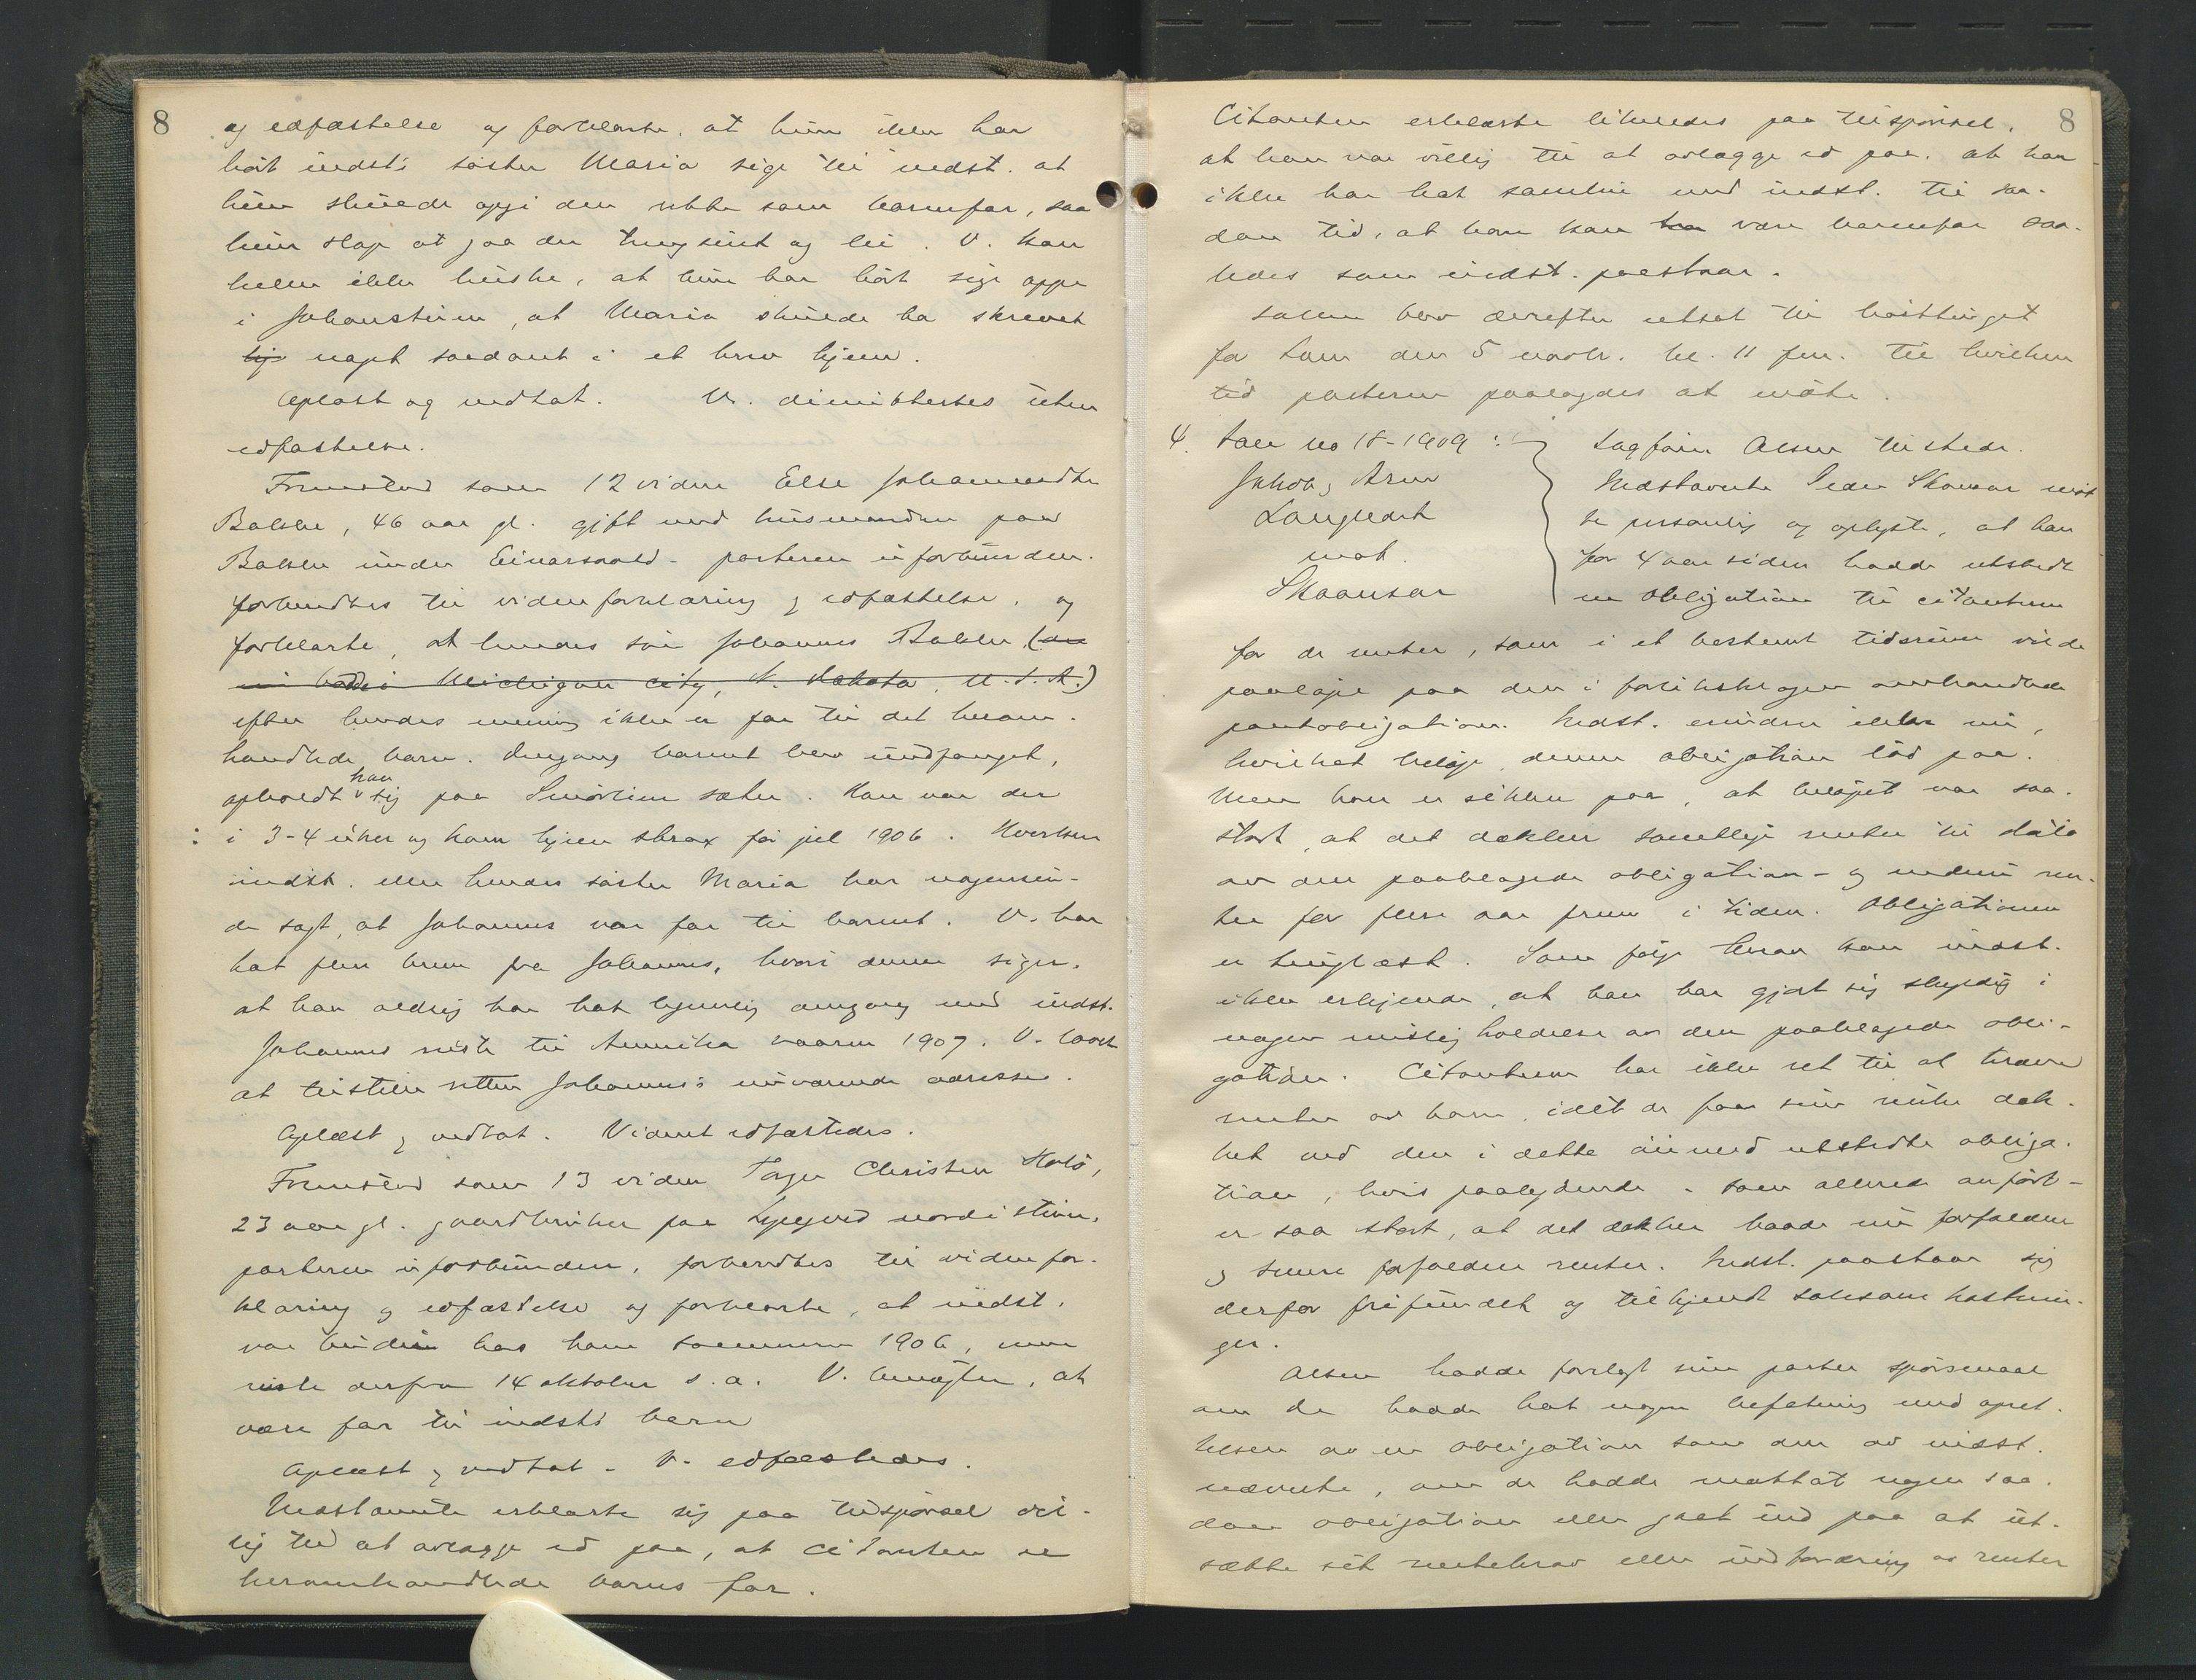 8
og edfæstelse og forklarte, at hun ikke har
hört indst's söster Maria sige til indst. at
hun skulde opgi den rette som barnefar, saa
hun slap at gaa der tungsint og lei. V. kan
heller ikke huske, at hun har hört sige oppe
i Johansteien, at Maria skulde ha skrevet
hj noget saadant i et brev hjem.
Oplæst og vedtat. V. dimitteres uten
edfæstelse.
Fremstod som 12 vidne Else Johannesdtr
Bakken, 46 aar gl. gift med husmanden paa
Bakken under Einarsvold - parterne uforbunden.
forberedtes til vidneforklaring og edfæstelse, og
forklarte, at hendes sön Johannes Bakken, (der
nu bodde i Michigan city, N. Dakota, U.S.A.)
efter hendes mening ikke er far til det heromhandlede
handlede barn. Dengang barnet blev undfanget,
opholdt han sig paa Smörlien sæter. Han var der
: i 3-4 uker og kom hjem strax för jul 1906. Hverken
indst. eller hendes söster Maria har nogensin-
de sagt, at Johannes var far til barnet. V. har
hat flere breve fra Johannes, hvori denne siger,
at han aldrig har hat legemlig omgang med indst.
Johannes reiste til Amerika vaaren 1907. V. lovet
at tilstille retten Johannes's nuværende adresse.
Oplæst og vedtat. Vidnet edfæstedes.
Fremstod som 13 vidne Torger Christen Holö,
23 aar gl. gaardbruker paa nordi
parterne uforbunden, forberedtes til vidnefor-
klaring og edfæstelse og forklarte, at indst.
var budeie hos ham sommeren 1906, men
reiste derfra 14 oktober s.a. V. benegter, at
være far til indsts barn
Oplæst og vedtat - V. edfæstedes.
Indstevnte erklærte sig paa tilspörsel vil-
lig til at avlægge ed paa, at citanten er
heromhandlede barns far.
8
Citanten erklærte likeledes paa tilspörsel,
at han var villig til at avlægge ed paa, at han
ikke har hat samleie med indst. til saa-
dan tid, at han kan ha være barnefar saa-
ledes som indst. paastaar.
Saken blev derefter utsat til höstinget
for Lom den 5 novbr. kl. 11 fm. til hvilken
tid parterne paalagdes at möte.
4. Sak no 18-1909:
Jakob og Arne
Langleite
mot.
Skaansar
Sagförer Olsen tilstede.
Indstevnte Peder Skansar möt
te personlig og oplyste, at han
for 4 aar siden hadde utstedt
en obligation til citanterne
for de renter, som i et bestemt tidsrum vilde
paalöpe paa den i forliksklagen omhandlede
pantobligation. Indst. erindrer ikke nu,
hvilket belöp denne obligation löd paa.
Men han er sikker paa, at belöpet var saa
stort, at det dækker samtlige renter til dato
av den paaklagede obligation - og endnu ren-
ter for flere aar frem i tiden. Obligationen
er tinglæst. Som fölge herav kan indst.
ikke erkjende, at han har gjort sig skyldig i
nogen misligholdelse av den paaklagede obli-
gation. Citanterne har ikke ret til at kræve
renter av ham, idet de faar sine renter dek-
ket ved den i dette öiemed utstedte obliga-
tion, hvis paalydende - som allerede anfört -
er saa stort, at det dekker baade nu forfaldne
og senere forfaldne renter. Indst. paastaar sig
derfor frifundet og tilkjendt saksomkostnin-
ger.
Olsen hadde forelagt sine parter spörsmaal
om de hadde hat nogen befatning med opret-
telsen av en obligation som den av indst.
nævnte, om de hadde mottat nogen saa-
dan obligation eller gaat ind paa at ut-
sætte sit rentekrav eller indfordring av renter